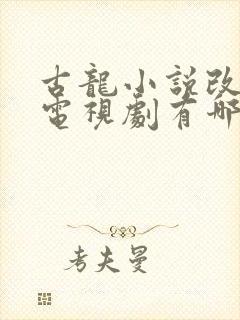 古龍小説改
電視劇有哪
考夫曼